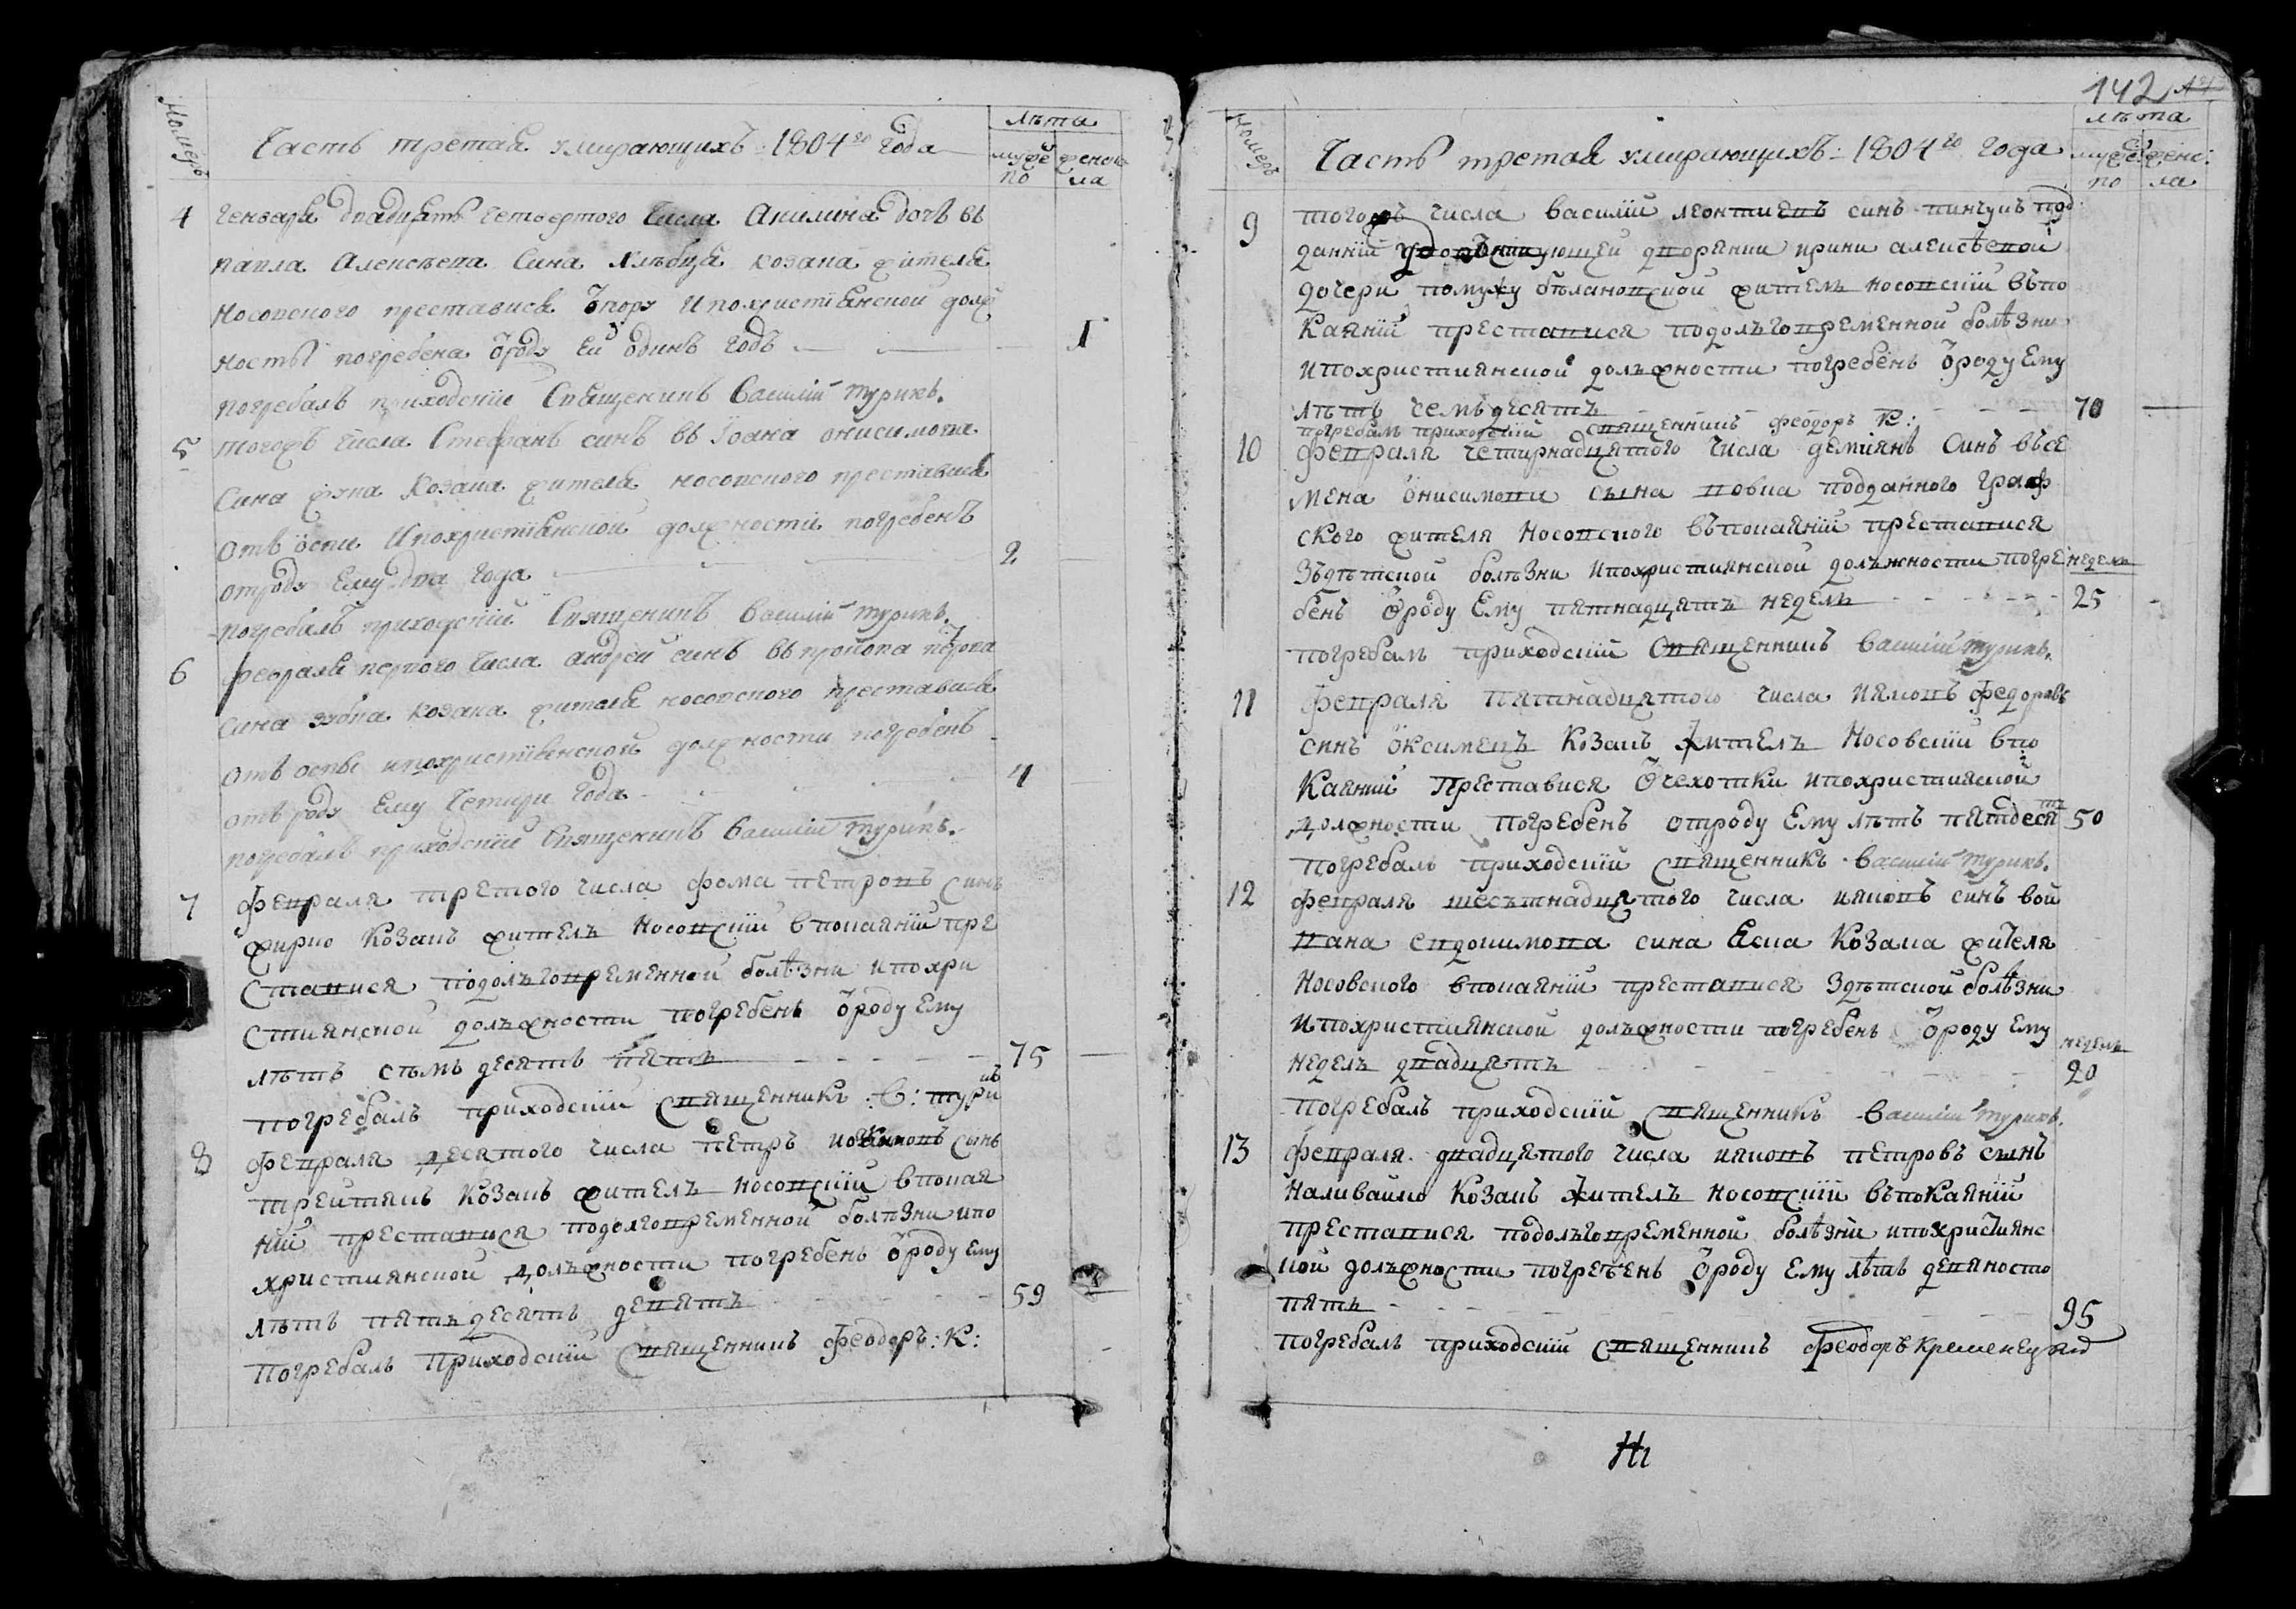 Номеръ
Часть третая умирающихъ 1804го года
лѣта
мужеска
по ла
4 Генваря двадцять четвертого числа Акилина дочъ въ
павла Алексѣева сина хлѣбця козака жителя
Носовского преставися и похристіанской долж
ности погребена ѿроду Ей одинъ годъ — — 1
погребалъ приходскій Священикъ Василій Турикъ.
5 тогожъ числа Стефанъ синъ въ Іоана онисимова
сина козака жителя носовского преставися
отъ оспи и похристіанской должности погребенъ
отроду Ему два года — 2
погребалъ приходскій Священикъ Василій Турикъ.
6 февраля первого числа андрей синъ въ прокопа
сина зубка козака жителя носовского преставися
отъ оспы и похристіанской должности погребенъ
отъ роду Ему четири года — 4
погребалъ приходскій Священикъ Василій Турикъ.
7 февраля третого числа фома петровъ синъ
жирко козакъ жителъ носовскій в покаяніи пре
ставися подолъговременной болѣзни и похри
стиянской должности погребенъ ѿроду Ему
лѣтъ сѣмъ десятъ пятъ — 75
погребалъ приходскій священникъ :В: турикъ
8 февраля десятого числа петръ сынъ
козакъ жителъ носовскій в покая
ніи преставися подолговременной болѣзни и по
християнской должности погребенъ ѿроду Ему
лѣтъ пятъдесятъ девятъ — 59
погребалъ приходскій священникъ феодоръ :К:
142
Номеръ
Часть третая умирающихъ 1804го года
лѣта
по ла
9 тогожъ числа василій леонтиевъ синъ пинчукъ под
данній дворянки ирини алексѣевой
дочери помужу бѣлановской жителъ носовскій въ по
каяніи преставися подолъговременной болѣзни
и похристиянской должности погребенъ ѿроду Ему
лѣтъ семъдесятъ — 70 —
погребалъ приходскій священникъ феодоръ К:
10 февраля четирнадцятого числа демиянъ синъ въ се
мена онисимова сына вовка подданного граф
ского жителя носовского въ покаяніи преставися
зъ дѣтской болѣзни и похристиянской должности погре неделъ
бенъ ѿроду Ему пятнадцятъ неделъ — 25 -
погребалъ приходскій священникъ василій турикъ.
11 февраля пятнадцятого числа иаковъ федоровъ
синъ оксименъ козакъ жителъ носовскій в по
каяніи преставися ѿ чехотки и похристияской
должности погребенъ отроду Ему лѣтъ пятдеся тъ 50
погребалъ приходскій священникъ василій турикъ.
12 февраля шесътнадцятого числа иаковъ синъ в ой
вана евдокимова сина козака жителя
носовского в покаяніи преставися з дѣтской болѣзни
и похристиянской должности погребенъ ѿроду Ему неделъ
неделъ двадцятъ — 20
погребалъ приходскій священникъ василій турикъ.
13 февраля двадцятого числа иаковъ петровъ сынъ
наливайко козакъ жителъ носовскій въ покаяніи
преставися подолъговременной болѣзни и похристиянс
кой должности погребенъ ѿроду Ему лѣтъ девяносто
пятъ — 95
погребалъ приходскій священникъ феодоръ Кременецкій